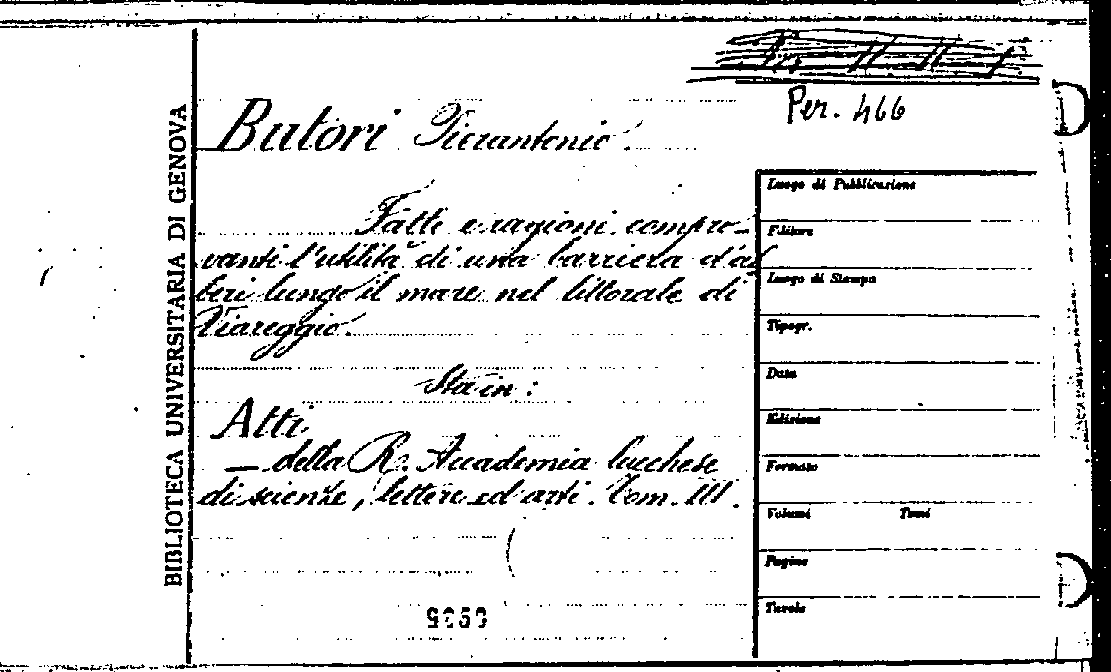 Per. 466
BIBLIOTECA UNIVERSITARIA DI GENOVA
Butori Pierantonio.
Fatti e ragioni compro-
vanti l'utilità di una barriera d'al
beri lungo il mare nel littorale di
Viareggio.
Sta in:
Atti
— della R. Accademia lucchese
di scienze, lettere ed arti. Tom. III.
Luogo di Pubblicazione
Editore
Luogo di Stampa
Tipogr.
Data
Edizione
Formato
Volumi Tomi
Pagine
Tavole